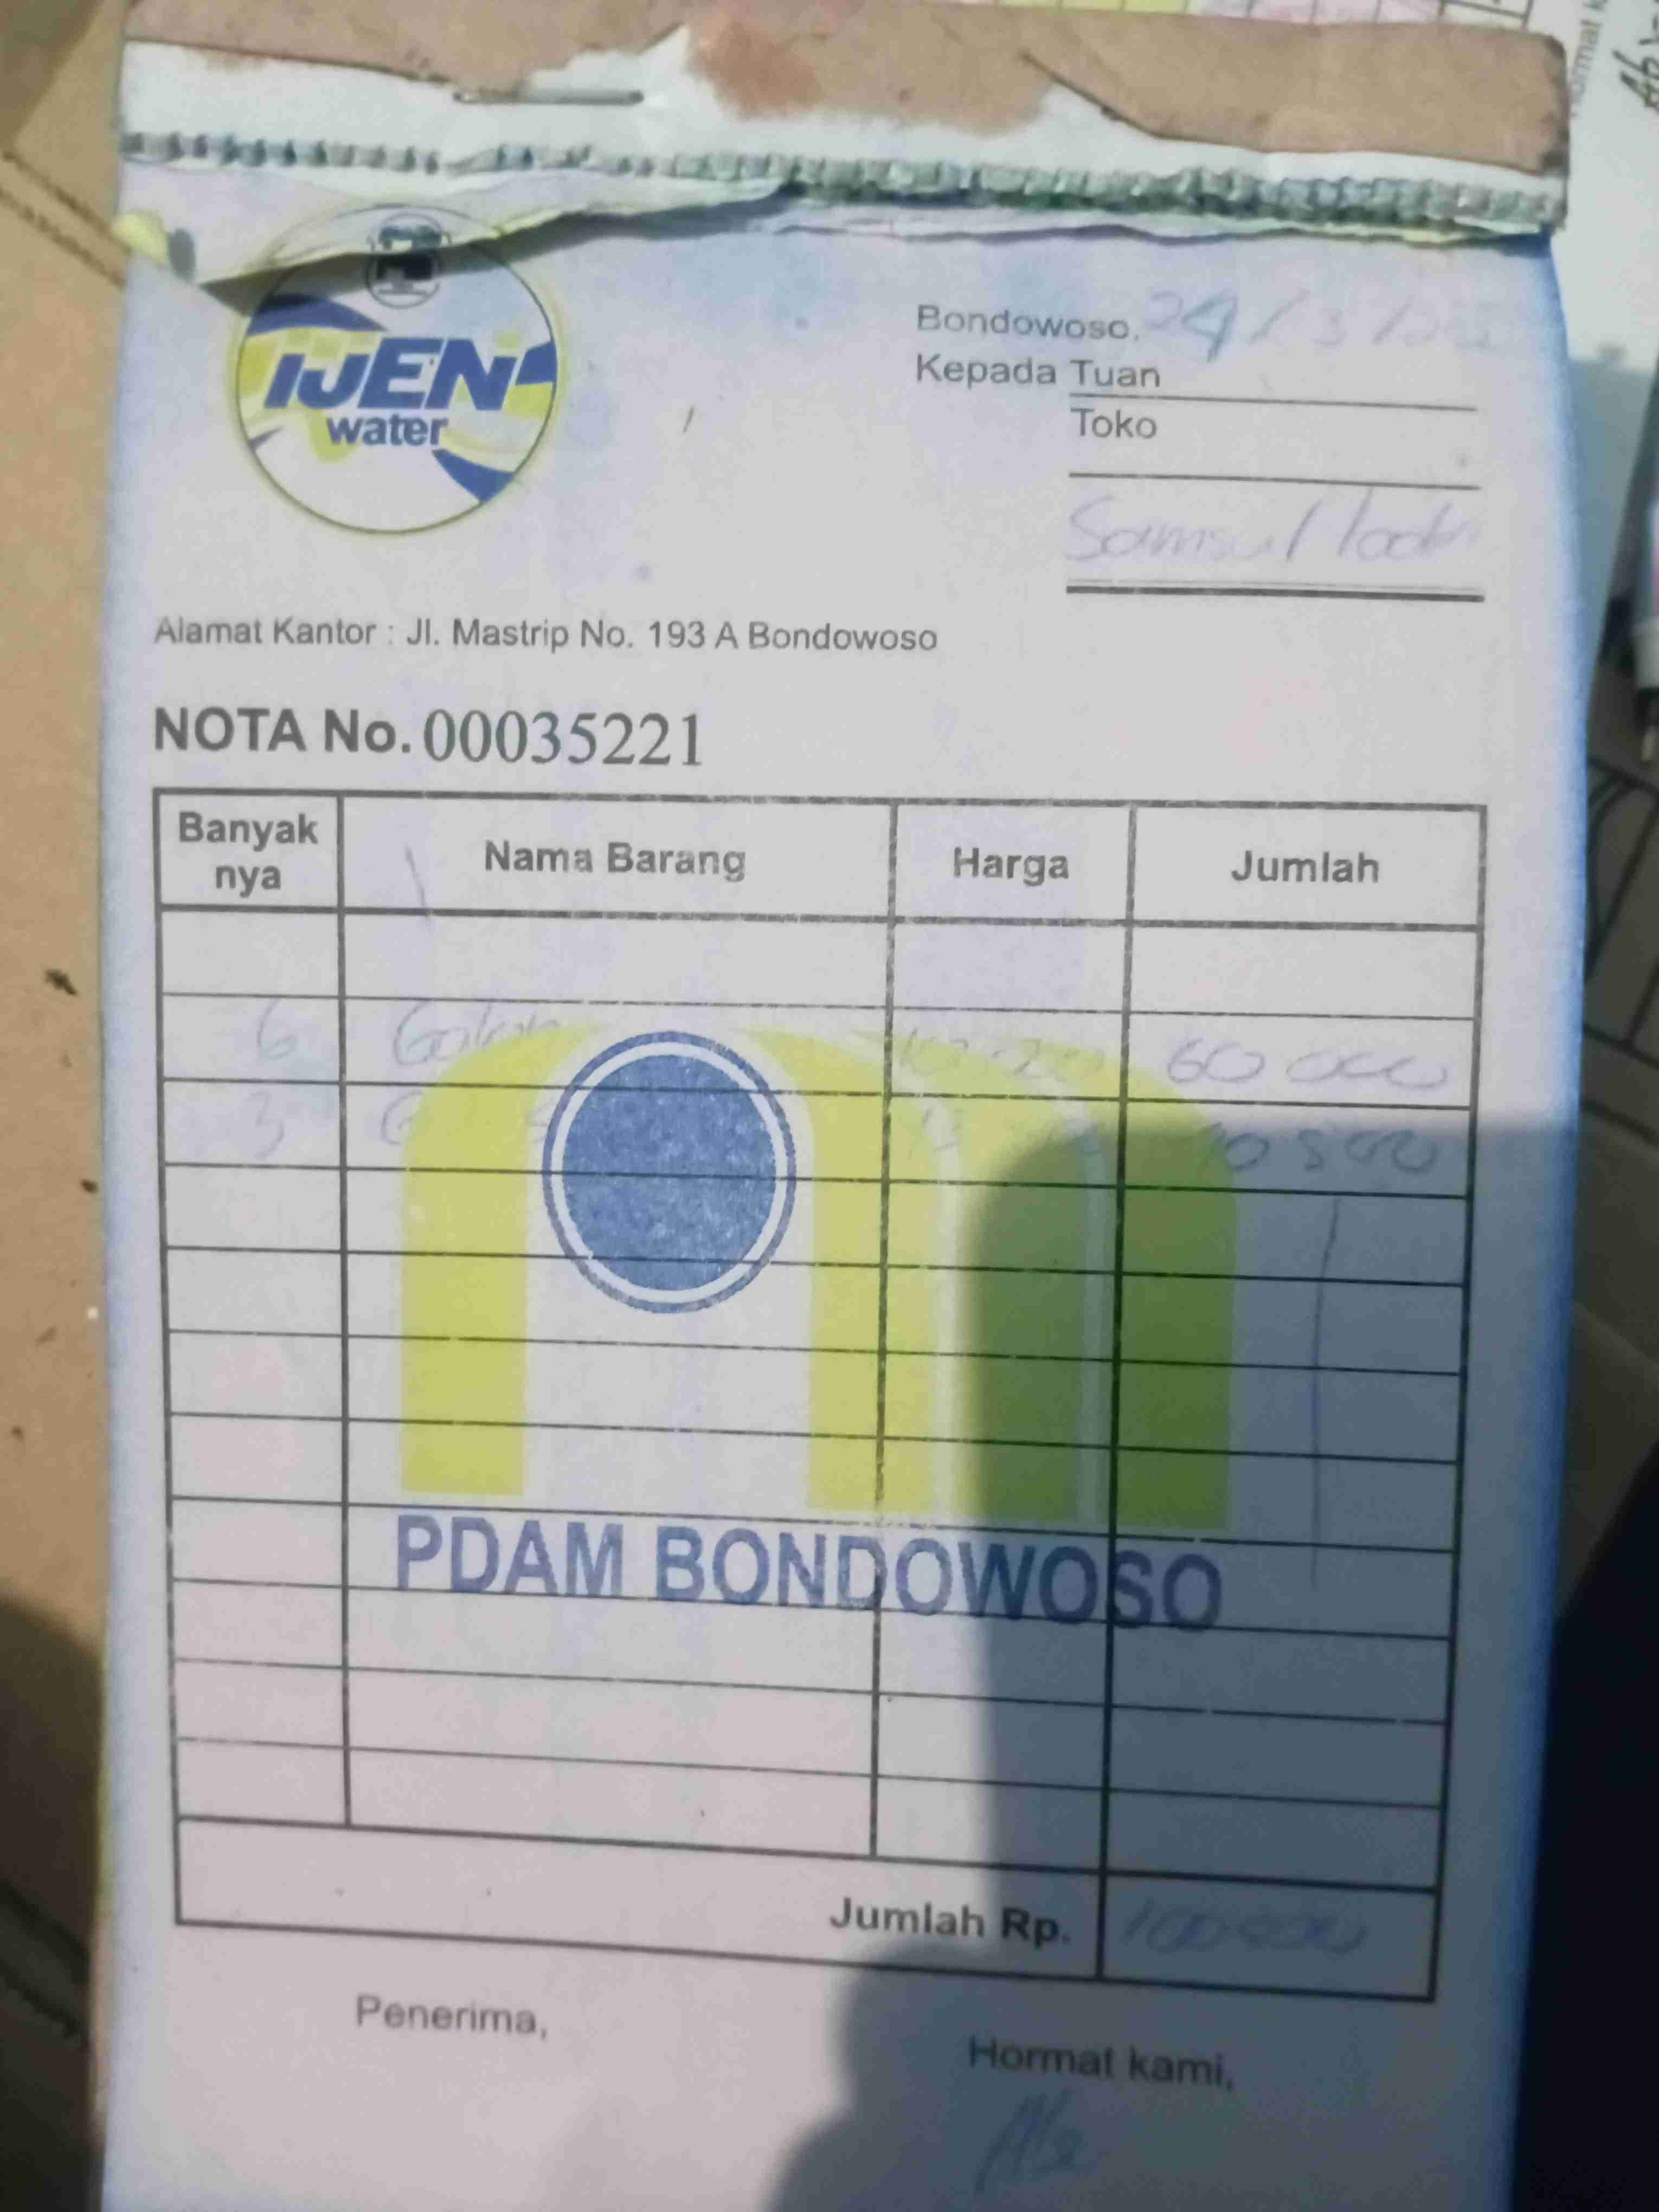 IJEN
water
Bondowoso. 29/3/
Kepada Tuan
Toko
Samsul
Alamat Kantor : Jl. Mastrip No. 193 A Bondowoso
NOTA No. 00035221
Banyak nya Nama Barang Harga Jumlah
6 Galon 60 000
3
PDAM BONDOWOSO
Jumlah Rp.
Penerima,
Hormat kami,